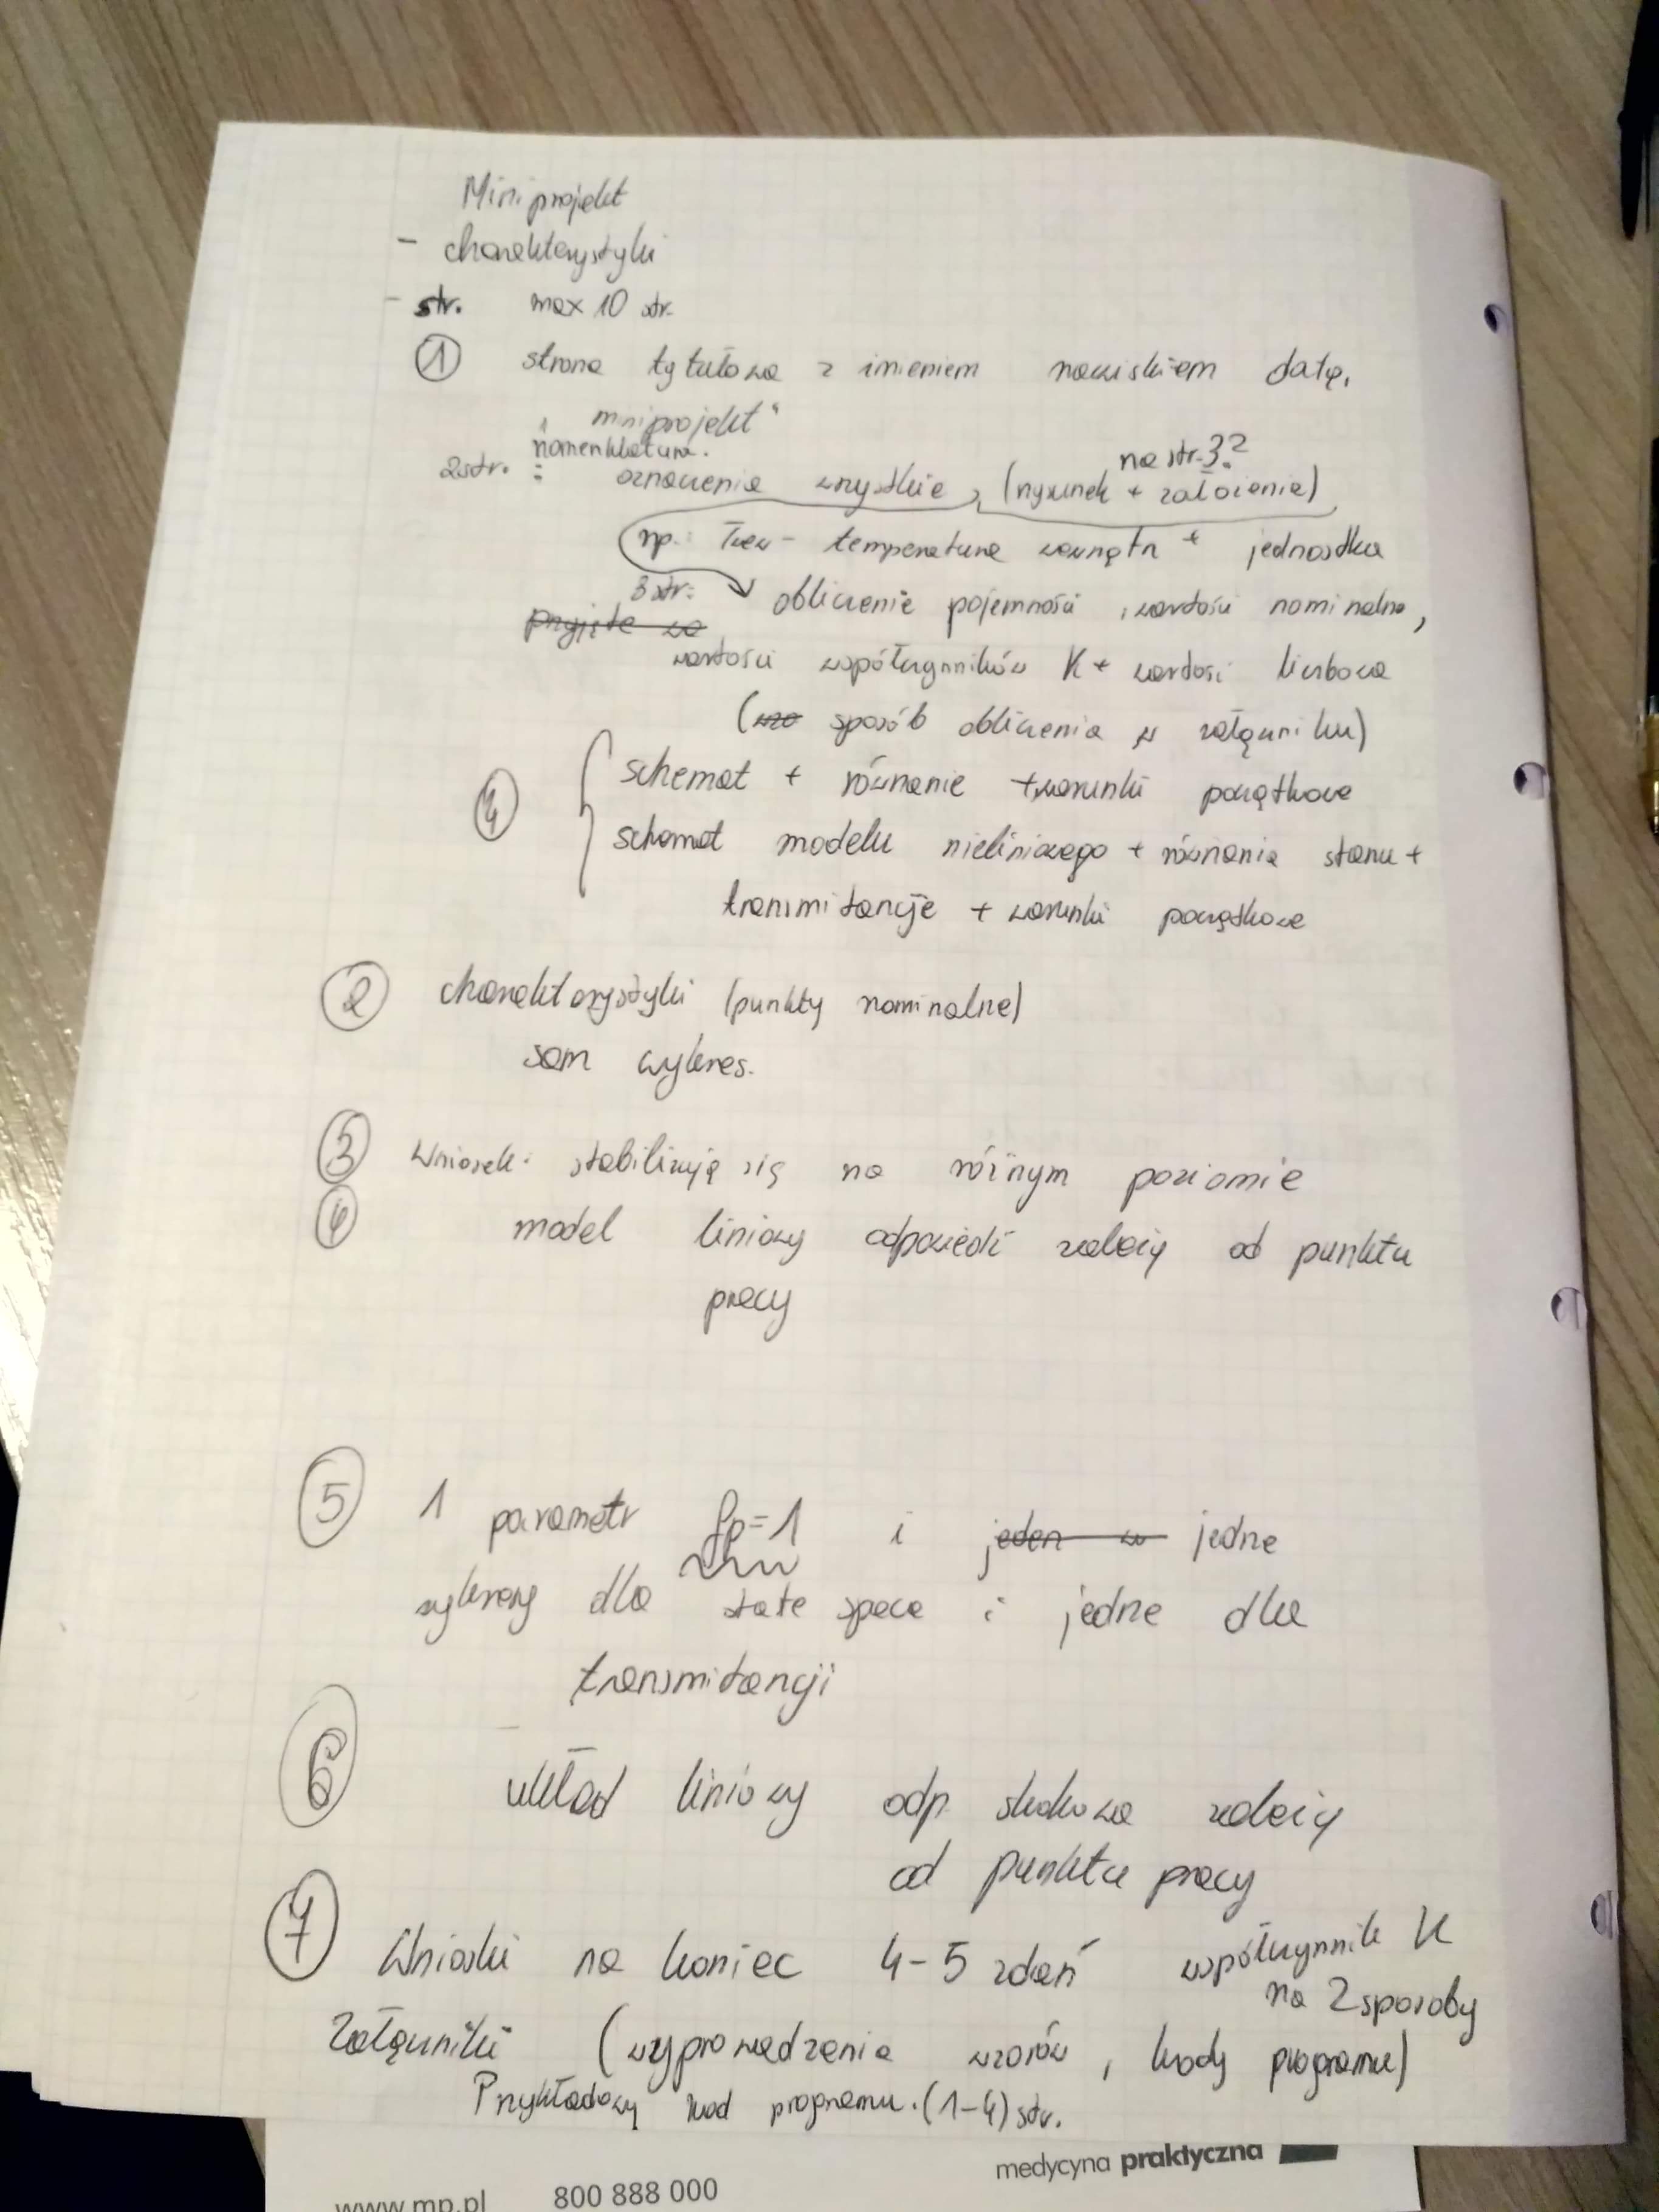 Mini projekt
- charakterystyki
- str. max 10 str.
① strona tytułowa z imieniem nazwiskiem datą,
"miniprojekt"
nomenklatura. na str. 3?
2str. : oznaczenia wszystkie, (rysunek + założenia)
np. Twew - temperatura wewnątrz + jednostka
3 str: obliczenie pojemności, wartości nominalne,
przyjęte wa
wartości współczynników K + wartość liczbowa
(wzo sposób obliczenia w załączniku)
④ schemat + równanie + warunki początkowe
schemat modelu nieliniowego + równania stanu +
transmitancje + warunki początkowe
② charakterystyki (punkty nominalne)
sam wykres.
③ Wniosek: stabilizują się na różnym poziomie
④ model liniowy odpowiedź zależy od punktu
pracy
⑤ 1 parametr fp=1 i jeden w jedne
wykresy dla state space i jedne dla
transmitancji
⑥ układ liniowy odp. skokowa zależy
od punktu pracy
⑦ Wnioski na koniec 4-5 zdań współczynnik K
na 2 sposoby
Załączniki (wyprowadzenia wzorów, kody programu)
Przykładowy kod programu. (1-4) str.
medycyna praktyczna
www.mp.pl 800 888 000